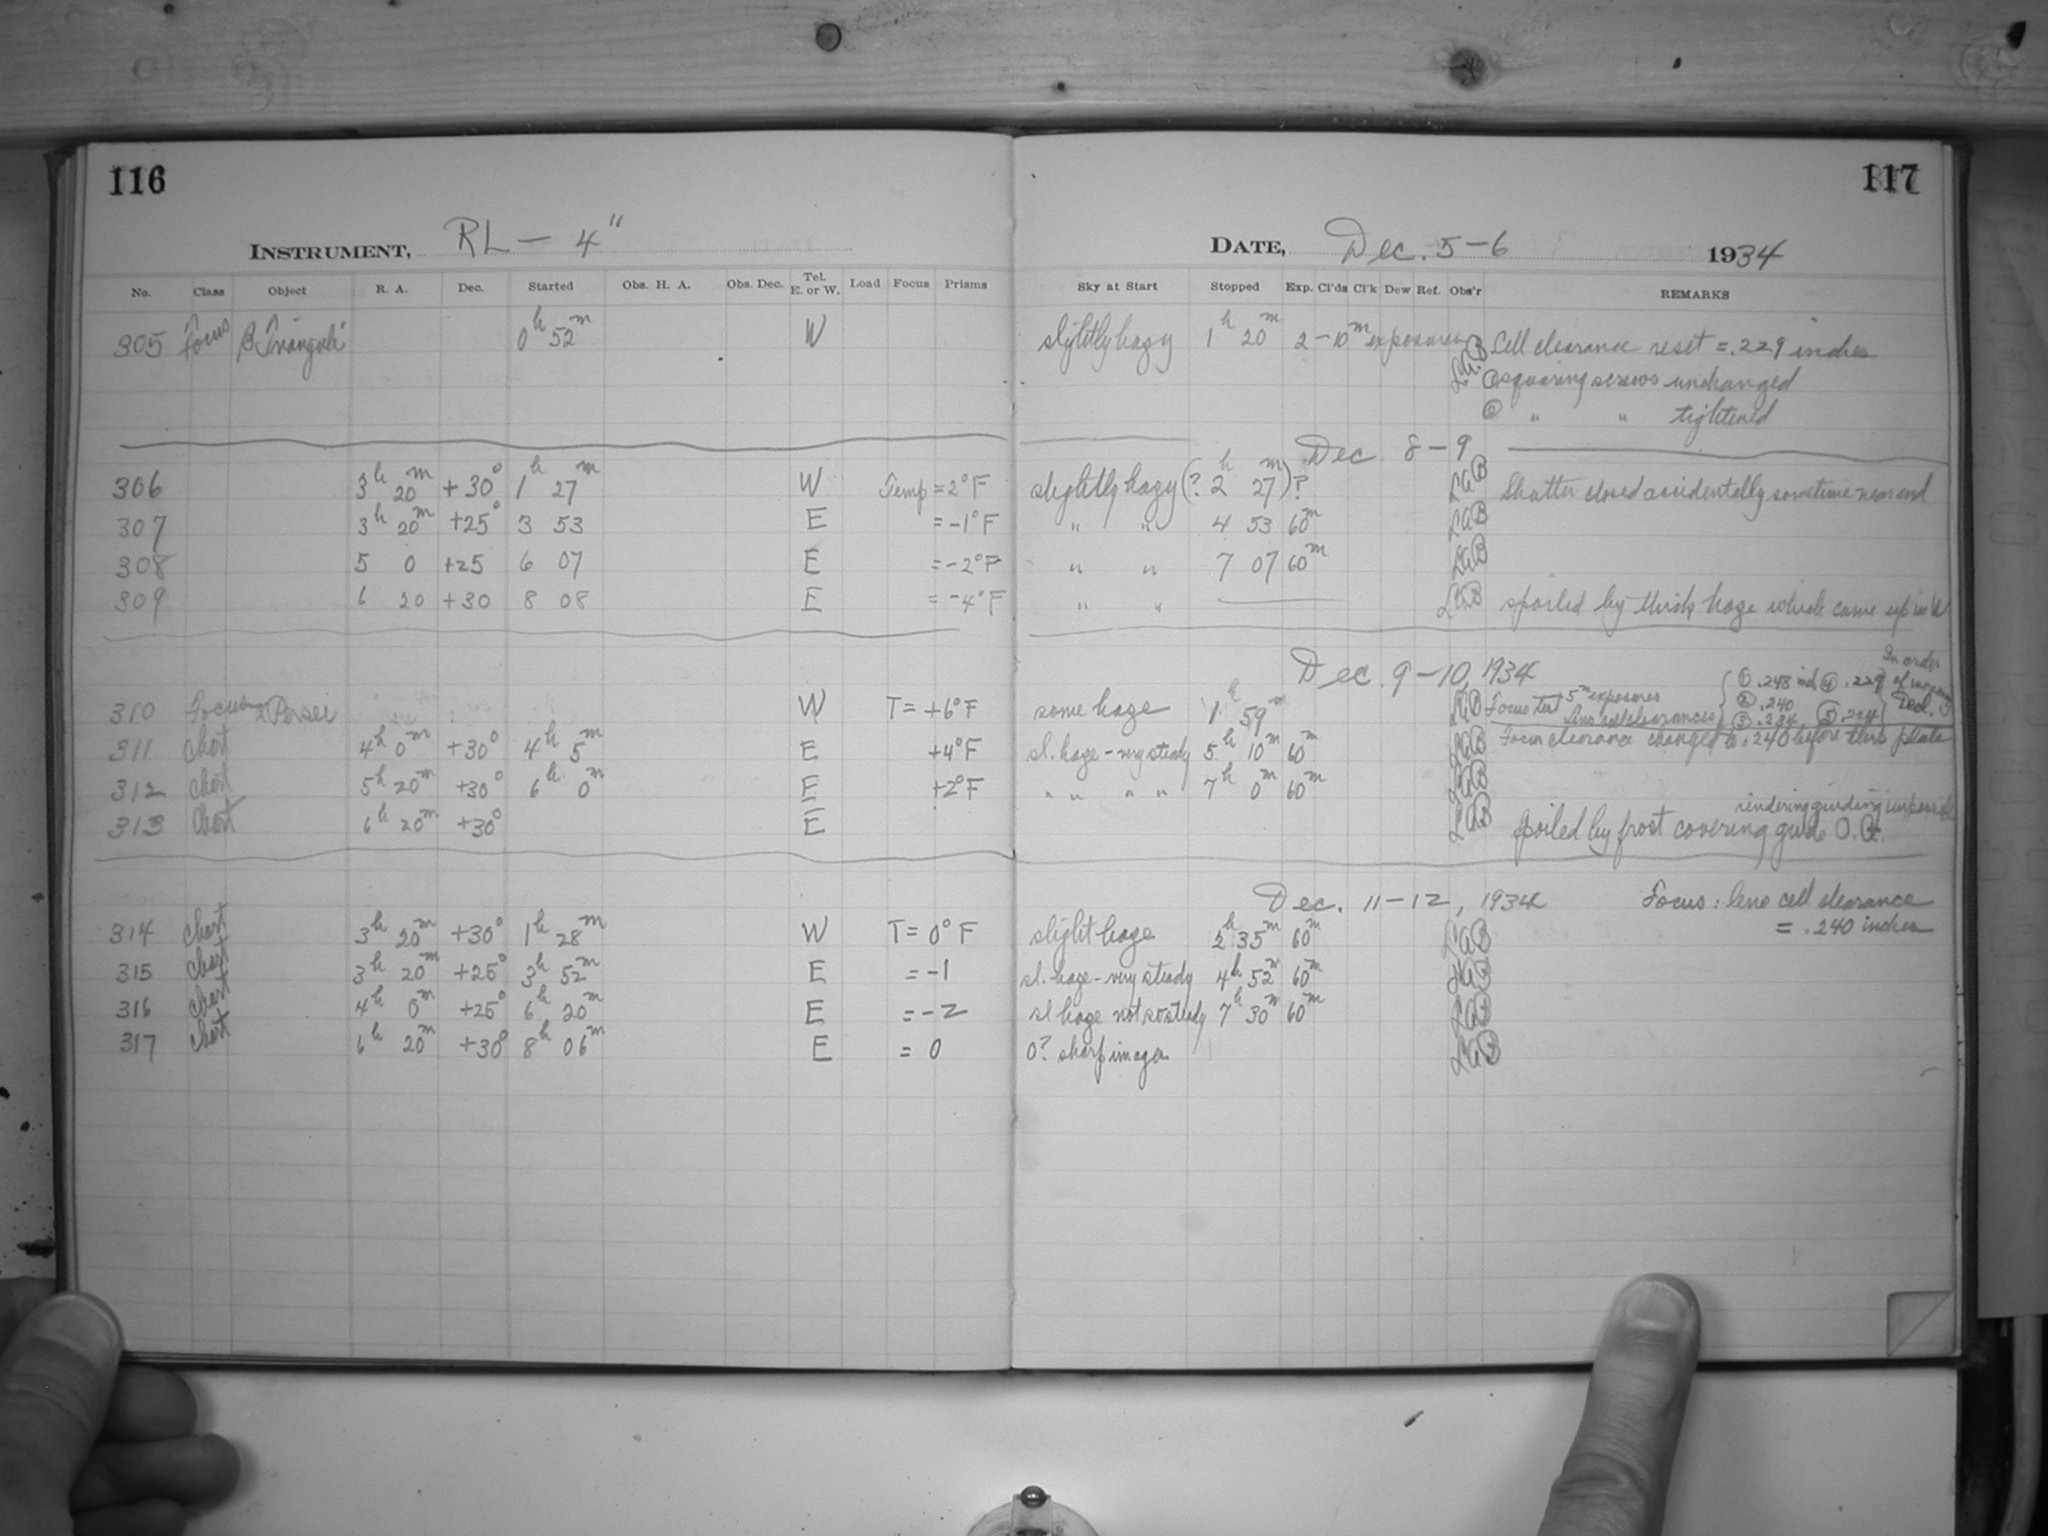 116
117
INSTRUMENT, RL - 4"
DATE, Dec. 5-6 1934
No. Class Object R. A. Dec. Started Obs. H. A. Obs. Dec. Tel. E. or W. Load Focus Prisms Sky at Start Stopped Exp. Cl'ds Cl'k Dew Ref. Obs'r REMARKS
305 Focus β Trianguli 0h 52m W slightly hazy 1h 20m 2-10m exposures L.A.B Cell clearance reset = .229 inches
① squaring screws unchanged
② " " tightened
Dec 8-9
306 3h 20m +30° 1h 27m W Temp = 2°F slightly hazy (? 2h 27m)? LAB Shutter closed accidentally sometime near end
307 3h 20m +25° 3 53 E = -1°F " " 4 53 60m LAB
308 5 0 +25 6 07 E = -2°F " " 7 07 60m LAB
309 6 20 +30 8 08 E = -4°F " " LAB spoiled by thick haze which came up in W
Dec. 9-10, 1934
310 Focus Persei W T = +6°F some haze 1h 59m LAB Focus Test 5m exposures
lens cell clearances ① .248 ind ④ .229 ② .240 ③ .234 ⑤ .224 In order of Dec.
311 Chart 4h 0m +30° 4h 5m E +4°F sl. haze - very steady 5h 10m 60m LAB Focus clearance changed to .240 before this plate
312 Chart 5h 20m +30° 6h 0m E +2°F " " " " 7h 0m 60m LAB
313 Chart 6h 20m +30° E LAB Spoiled by frost covering guide O.G. rendering guiding impossible
Dec. 11-12, 1934 Focus: lens cell clearance
= .240 inches
314 Chart 3h 20m +30° 1h 28m W T = 0°F slight haze 2h 35m 60m LAB
315 Chart 3h 20m +25° 3h 52m E = -1 sl. haze - very steady 4h 52m 60m LAB
316 Chart 4h 0m +25° 6h 20m E = -2 sl haze not so steady 7h 30m 60m LAB
317 Chart 6h 20m +30° 8h 06m E = 0 0? sharp images LAB